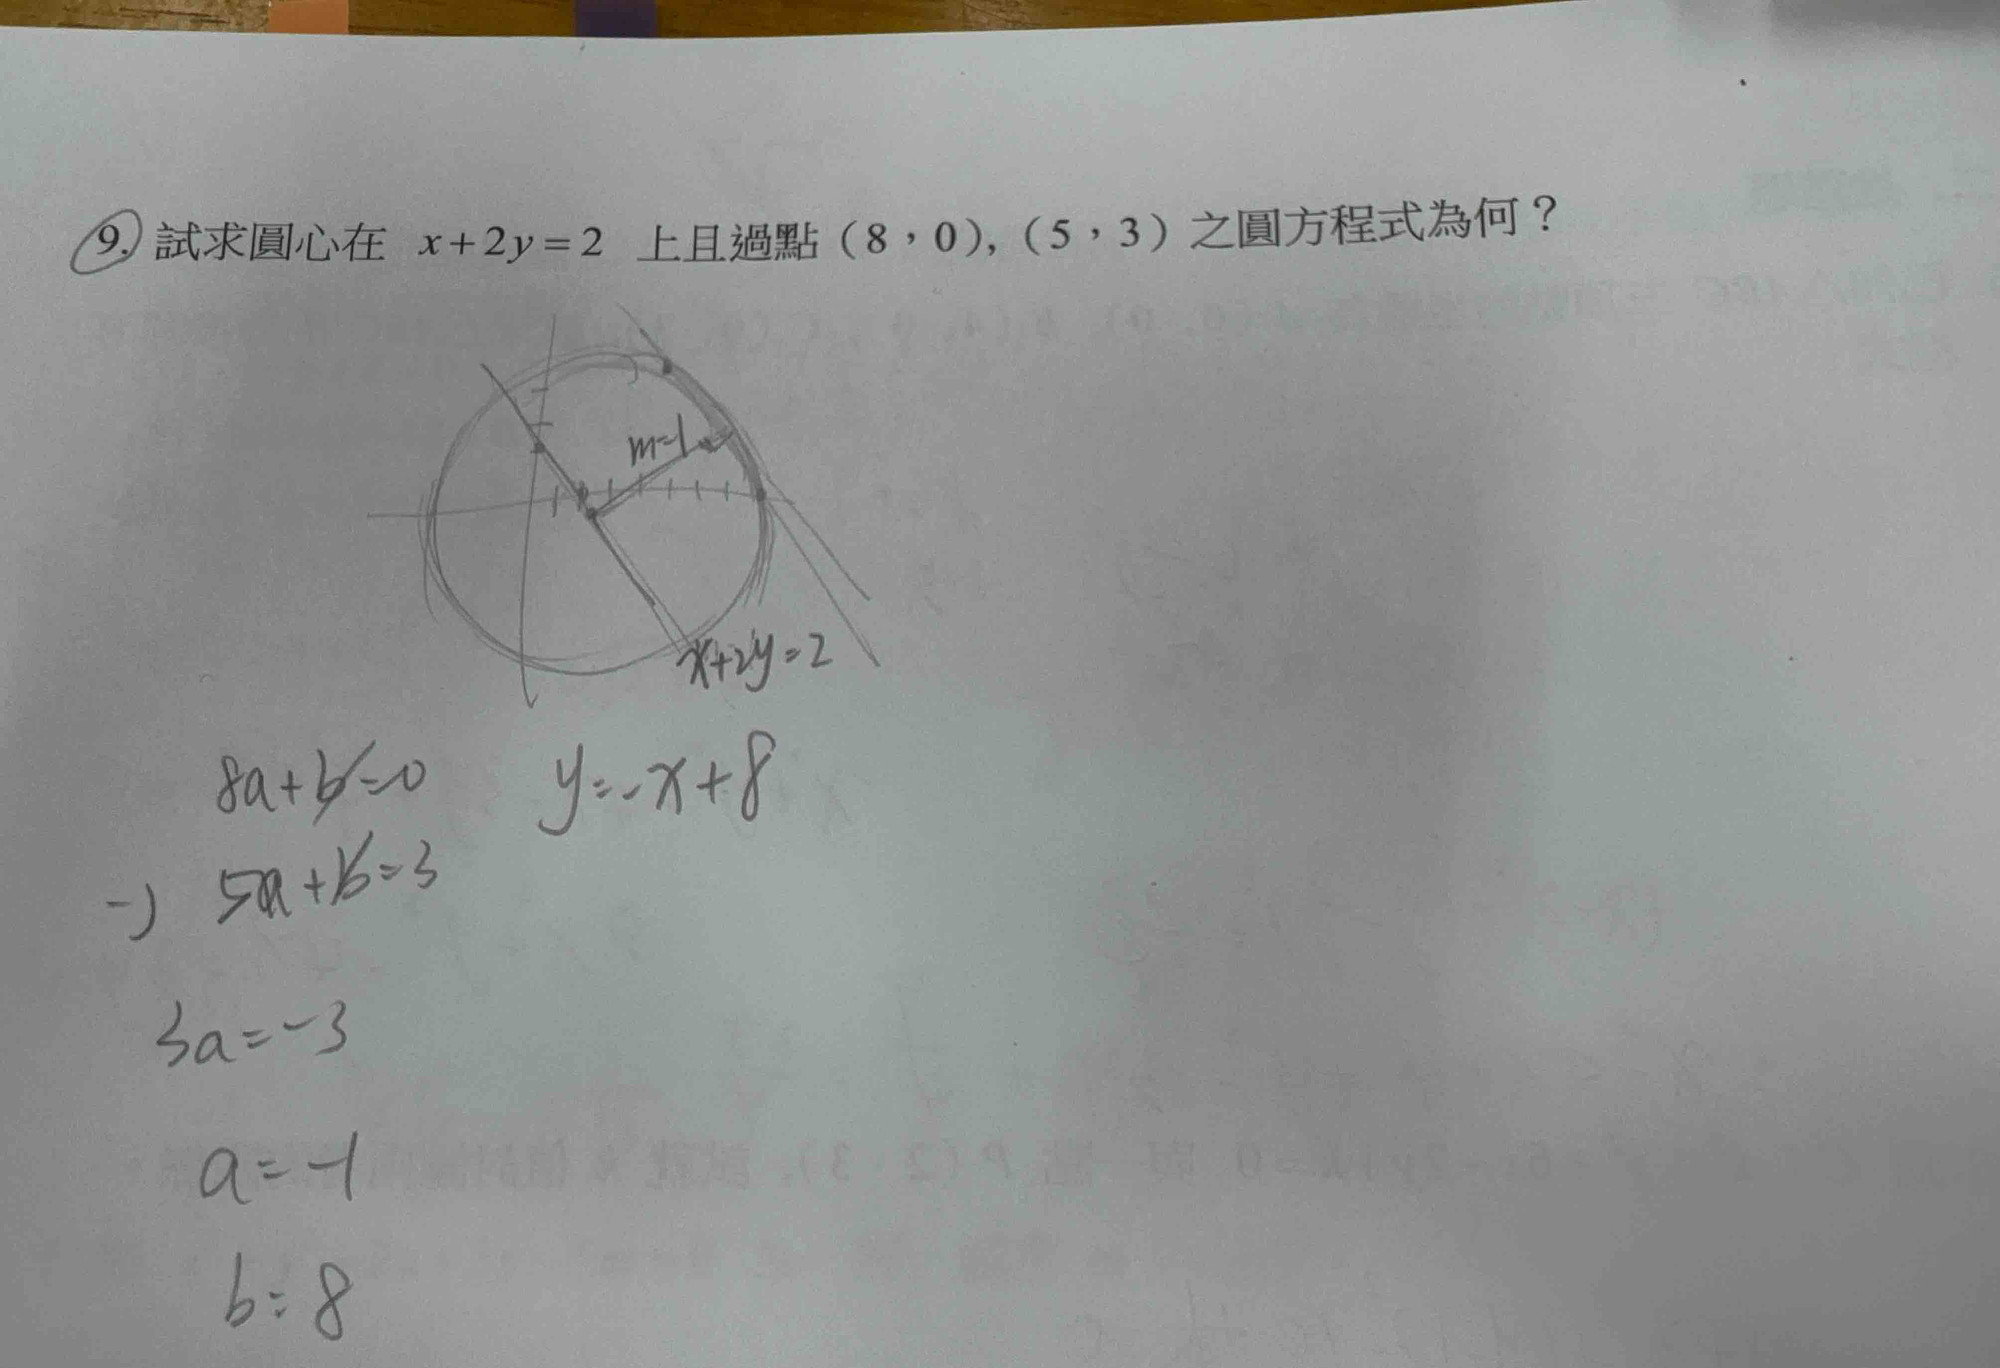 9. 試求圓心在 x+2y=2 上且過點（8，0），（5，3）之圓方程式為何？
m=1
x+2y=2
8a+b=0 y=-x+8
-) 5a+b=3
3a=-3
a=-1
b=8